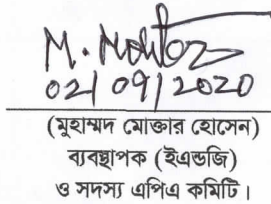 M. Moktar
02/09/2020
(মুহাম্মদ মোক্তার হোসেন)
ব্যবস্থাপক (ইএন্ডজি)
ও সদস্য এপিএ কমিটি।